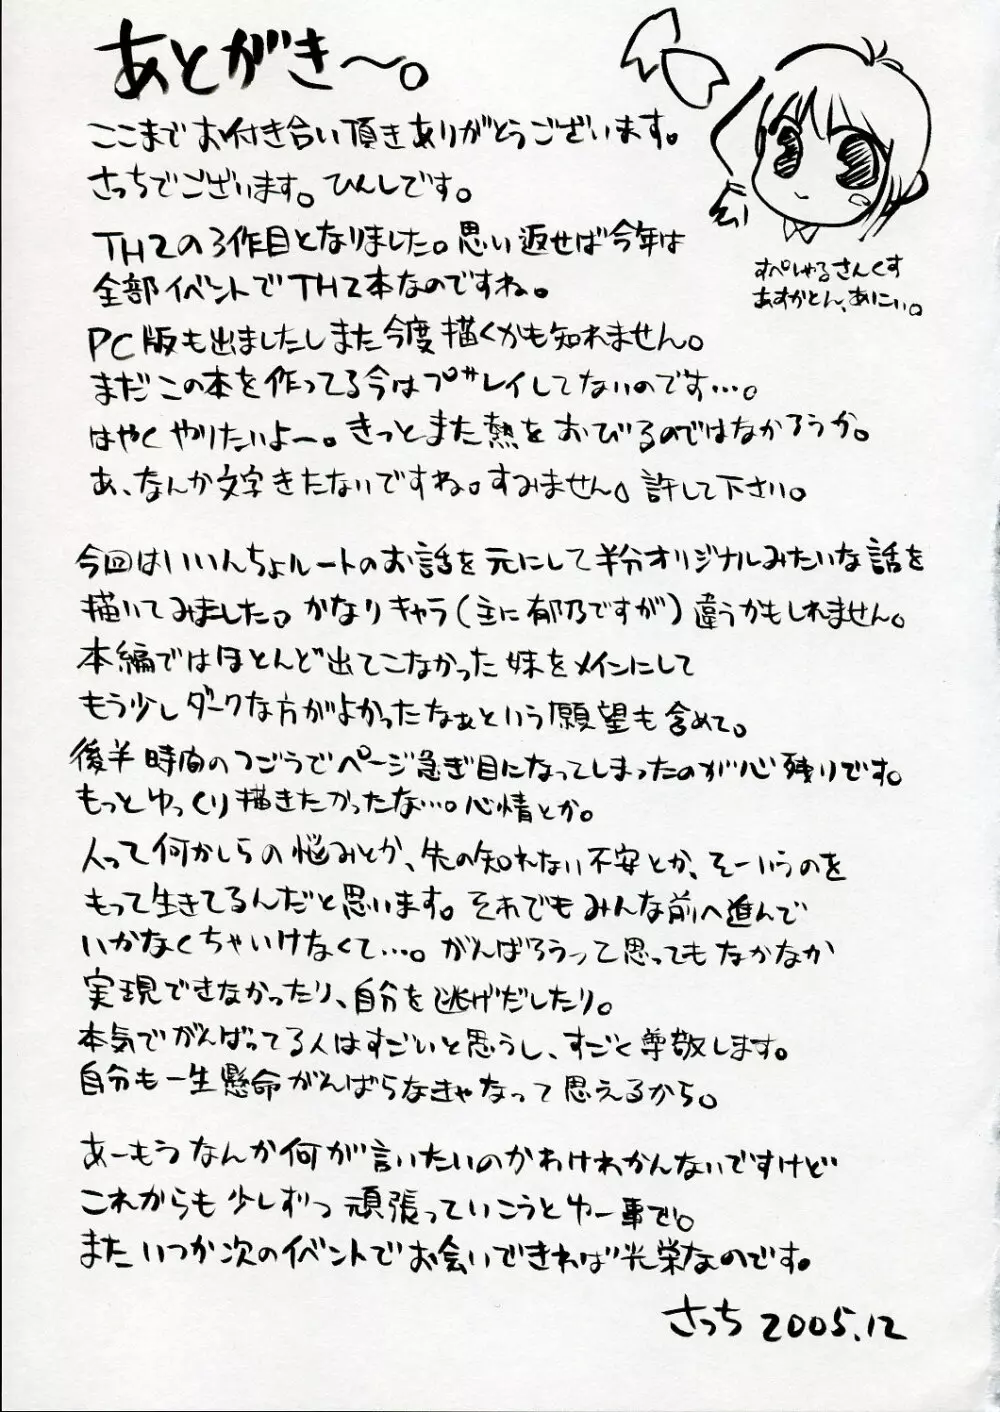 あとがき〜。
ここまでお付き合い頂きありがとうございます。
さっちでございます。ひんしです。
TH2の3作目となりました。思い返せば今年は
全部イベントでTH2本なのですね。
PC版も出ましたしまた今度描くかも知れません。
まだこの本を作ってる今はプレイしてないのです…。
はやくやりたいよー。きっとまた熱をおびるのではなかろうか。
あ、なんか文字きたないですね。すみません。許して下さい。
すぺしゃるさんくす
あすかとん、あにい。
今回はいいんちょルートのお話を元にして半分オリジナルみたいな話を
描いてみました。かなりキャラ(主に郁乃ですが)違うかもしれません。
本編ではほとんど出てこなかった妹をメインにして
もう少しダークな方がよかったなぁという願望も含めて。
後半時間のつごうでページ急ぎ目になってしまったのが心残りです。
もっとゆっくり描きたかったな…。心情とか。
人って何かしらの悩みとか、先の知れない不安とか、そーいうのを
もって生きてるんだと思います。それでもみんな前へ進んで
いかなくちゃいけなくて…。がんばろうって思ってもなかなか
実現できなかったり、自分を逃げだしたり。
本気でがんばってる人はすごいと思うし、すごく尊敬します。
自分も一生懸命がんばらなきゃなって思えるから。
あーもうなんか何が言いたいのかわけわかんないですけど
これからも少しずつ頑張っていこうとゆー事で。
またいつか次のイベントでお会いできれば光栄なのです。
さっち 2005.12